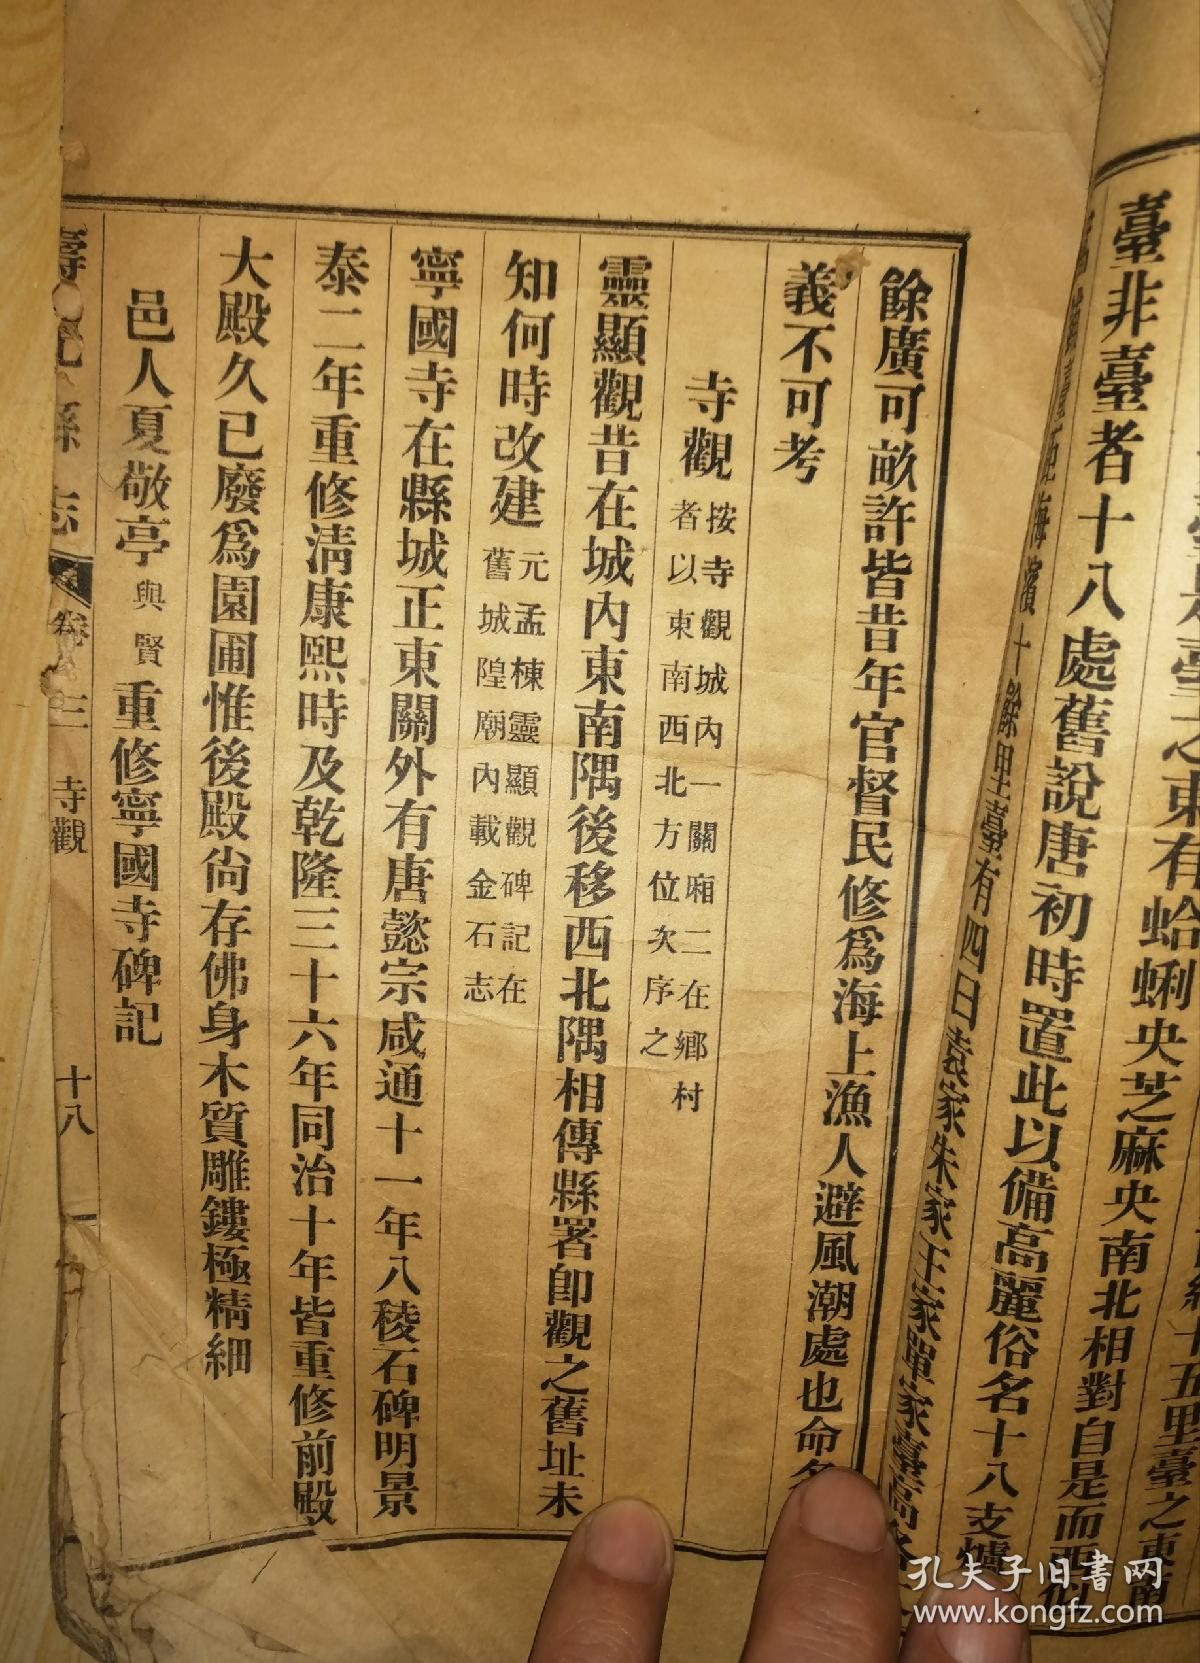 臺非臺者十八處舊說唐初時置此以備高麗俗名十八支爐
餘廣可畝許皆昔年官督民修爲海上漁人避風潮處也命名
義不可考
寺觀按寺觀城內一關廂二在鄉村者以東南西北方位次序之
靈顯觀昔在城內東南隅後移西北隅相傳縣署卽觀之舊址未
知何時改建元孟棟靈顯觀碑記在舊城隍廟內載金石志
寧國寺在縣城正東關外有唐懿宗咸通十一年八稜石碑明景
泰二年重修清康熙時及乾隆三十六年同治十年皆重修前殿
大殿久已廢爲園圃惟後殿尙存佛身木質雕鏤極精細
邑人夏敬亭與賢重修寧國寺碑記
壽光縣志 卷三 寺觀 十八
孔夫子旧书网
www.kongfz.com